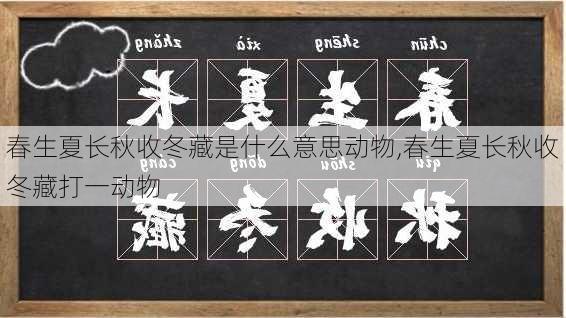 chūn shēng xià zhǎng
春生夏长
春生夏长秋收冬藏是什么意思动物,春生夏长秋收
冬藏打一动物
qiū shōu dōng cáng
秋收冬藏